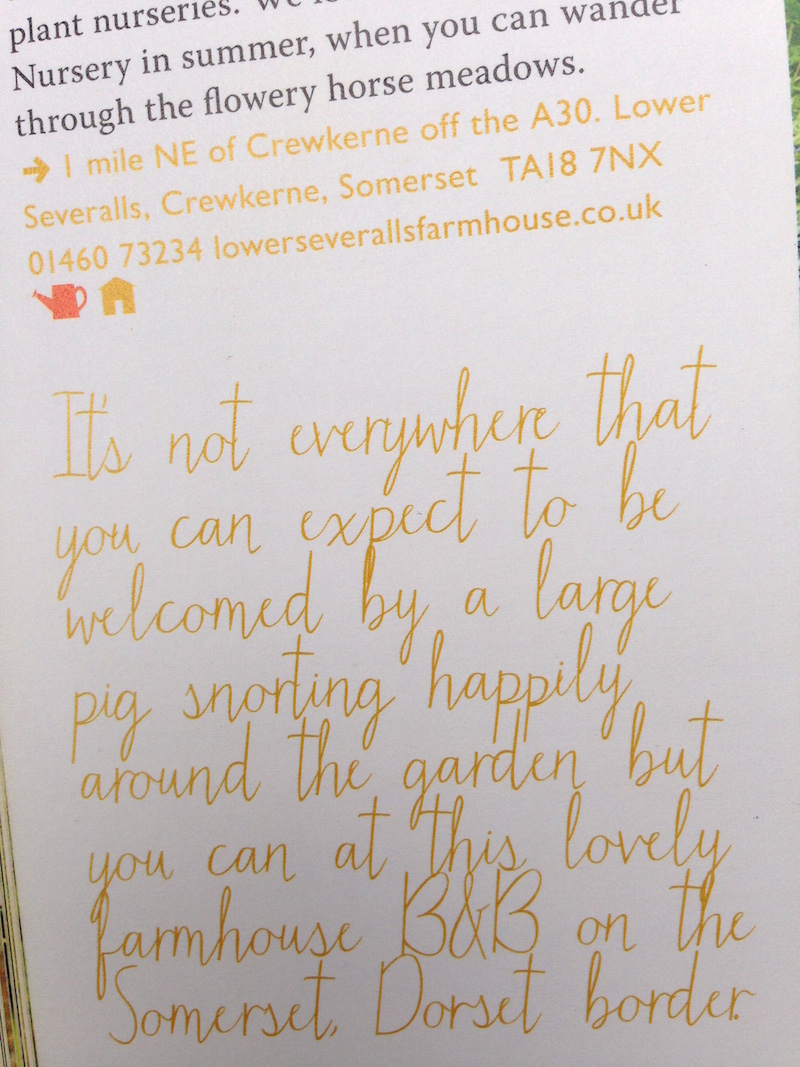 plant nurseries. We
Nursery in summer, when you can wander
through the flowery horse meadows.
➔ 1 mile NE of Crewkerne off the A30. Lower
Severalls, Crewkerne, Somerset TA18 7NX
01460 73234 lowerseverallsfarmhouse.co.uk
It's not everywhere that
you can expect to be
welcomed by a large
pig snorting happily
around the garden but
you can at this lovely
farmhouse B&B on the
Somerset, Dorset border.